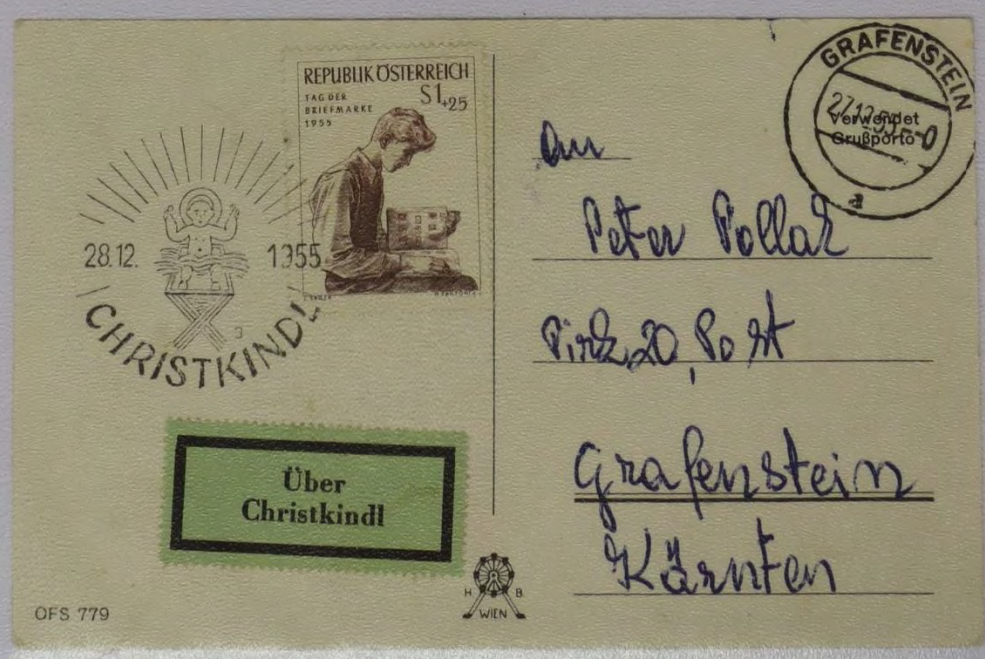 REPUBLIK ÖSTERREICH
S1+25
TAG DER
BRIEFMARKE
1955
28.12. 1955
CHRISTKINDL
Über
Christkindl
OFS 779
H B
WIEN
GRAFENSTEIN
27.12.55
Verwendet
Grußporto
a
An
Peter Pollak
Pirk 20, Post
Grafenstein
Kärnten